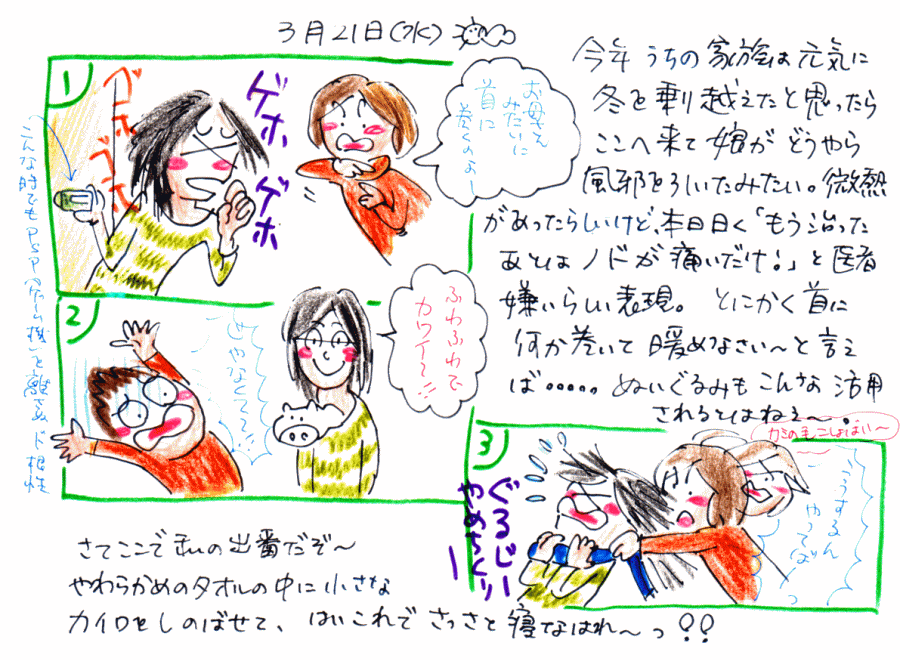 3月21日(水)
今年 うちの家族は元気に
冬を乗り越えたと思ったら
ここへ来て娘がどうやら
風邪をひいたみたい。微熱
があったらしいけど、本日曰く「もう治った
あとはノドが痛いだけ!」と医者
嫌いらしい表現。とにかく首に
何か巻いて暖めなさい〜と言え
ば・・・・・。ぬいぐるみもこんな活用
されるとはねぇ〜
1
ゴホ
ゴホ
ゲホ
ゲホ
お母さん
みたいに
首に
巻くのよー
こんな時でもPSP(ゲーム機)を離さぬド根性
2
じゃなくて
ふわふわで
カワイイ〜
3
ぐるじー
やめちくりー
こうするん
やってばっ
さてここで私の出番だぞ〜
やわらかめのタオルの中に小さな
カイロをしのばせて、はいこれでさっさと寝なはれ〜っ!!